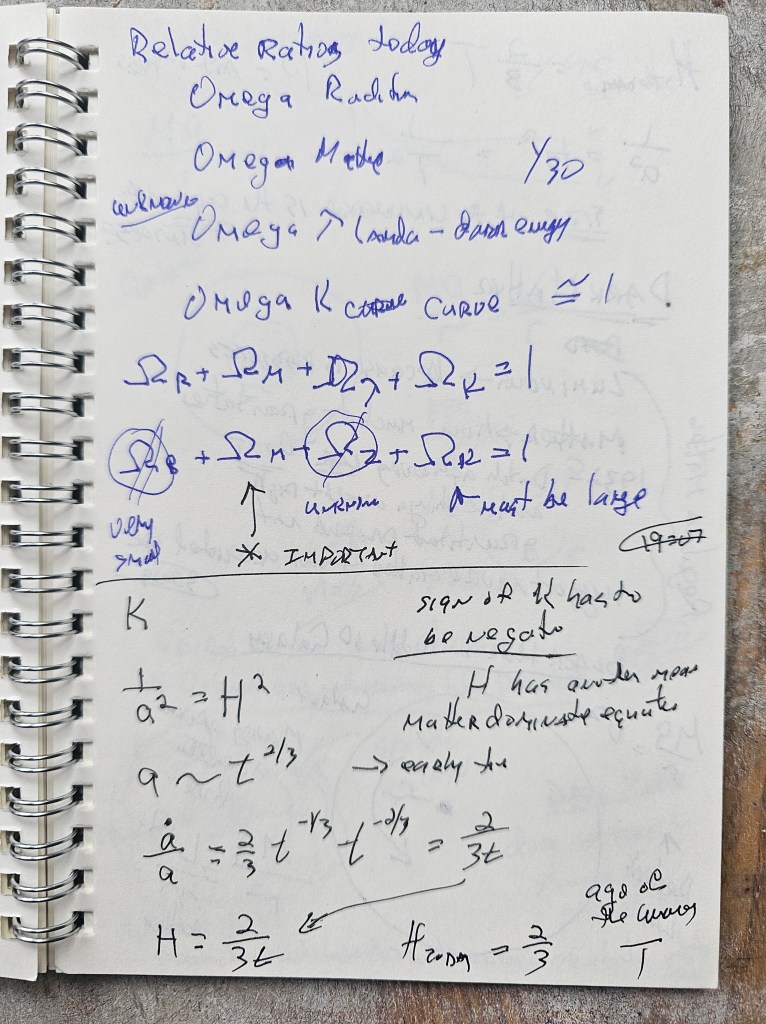 Relative Ratios today
Omega Radiation
Omega Matter 1/30
unknown Omega λ Lamda - dark energy
Omega K curve ≅ 1
Ω_R + Ω_M + Ω_λ + Ω_K = 1
Ω_R + Ω_M + Ω_λ + Ω_K = 1
very small
* IMPORTANT
unknown
↑ must be large
K
sign of K has to
be negative
1/a² = H²
H has another mean
Matter dominate
a ~ t^2/3 → early
ȧ/a = 2/3 t^-1/3 t^-2/3 = 2/3t
H = 2/3t
H today = 2/3
age of
the
T